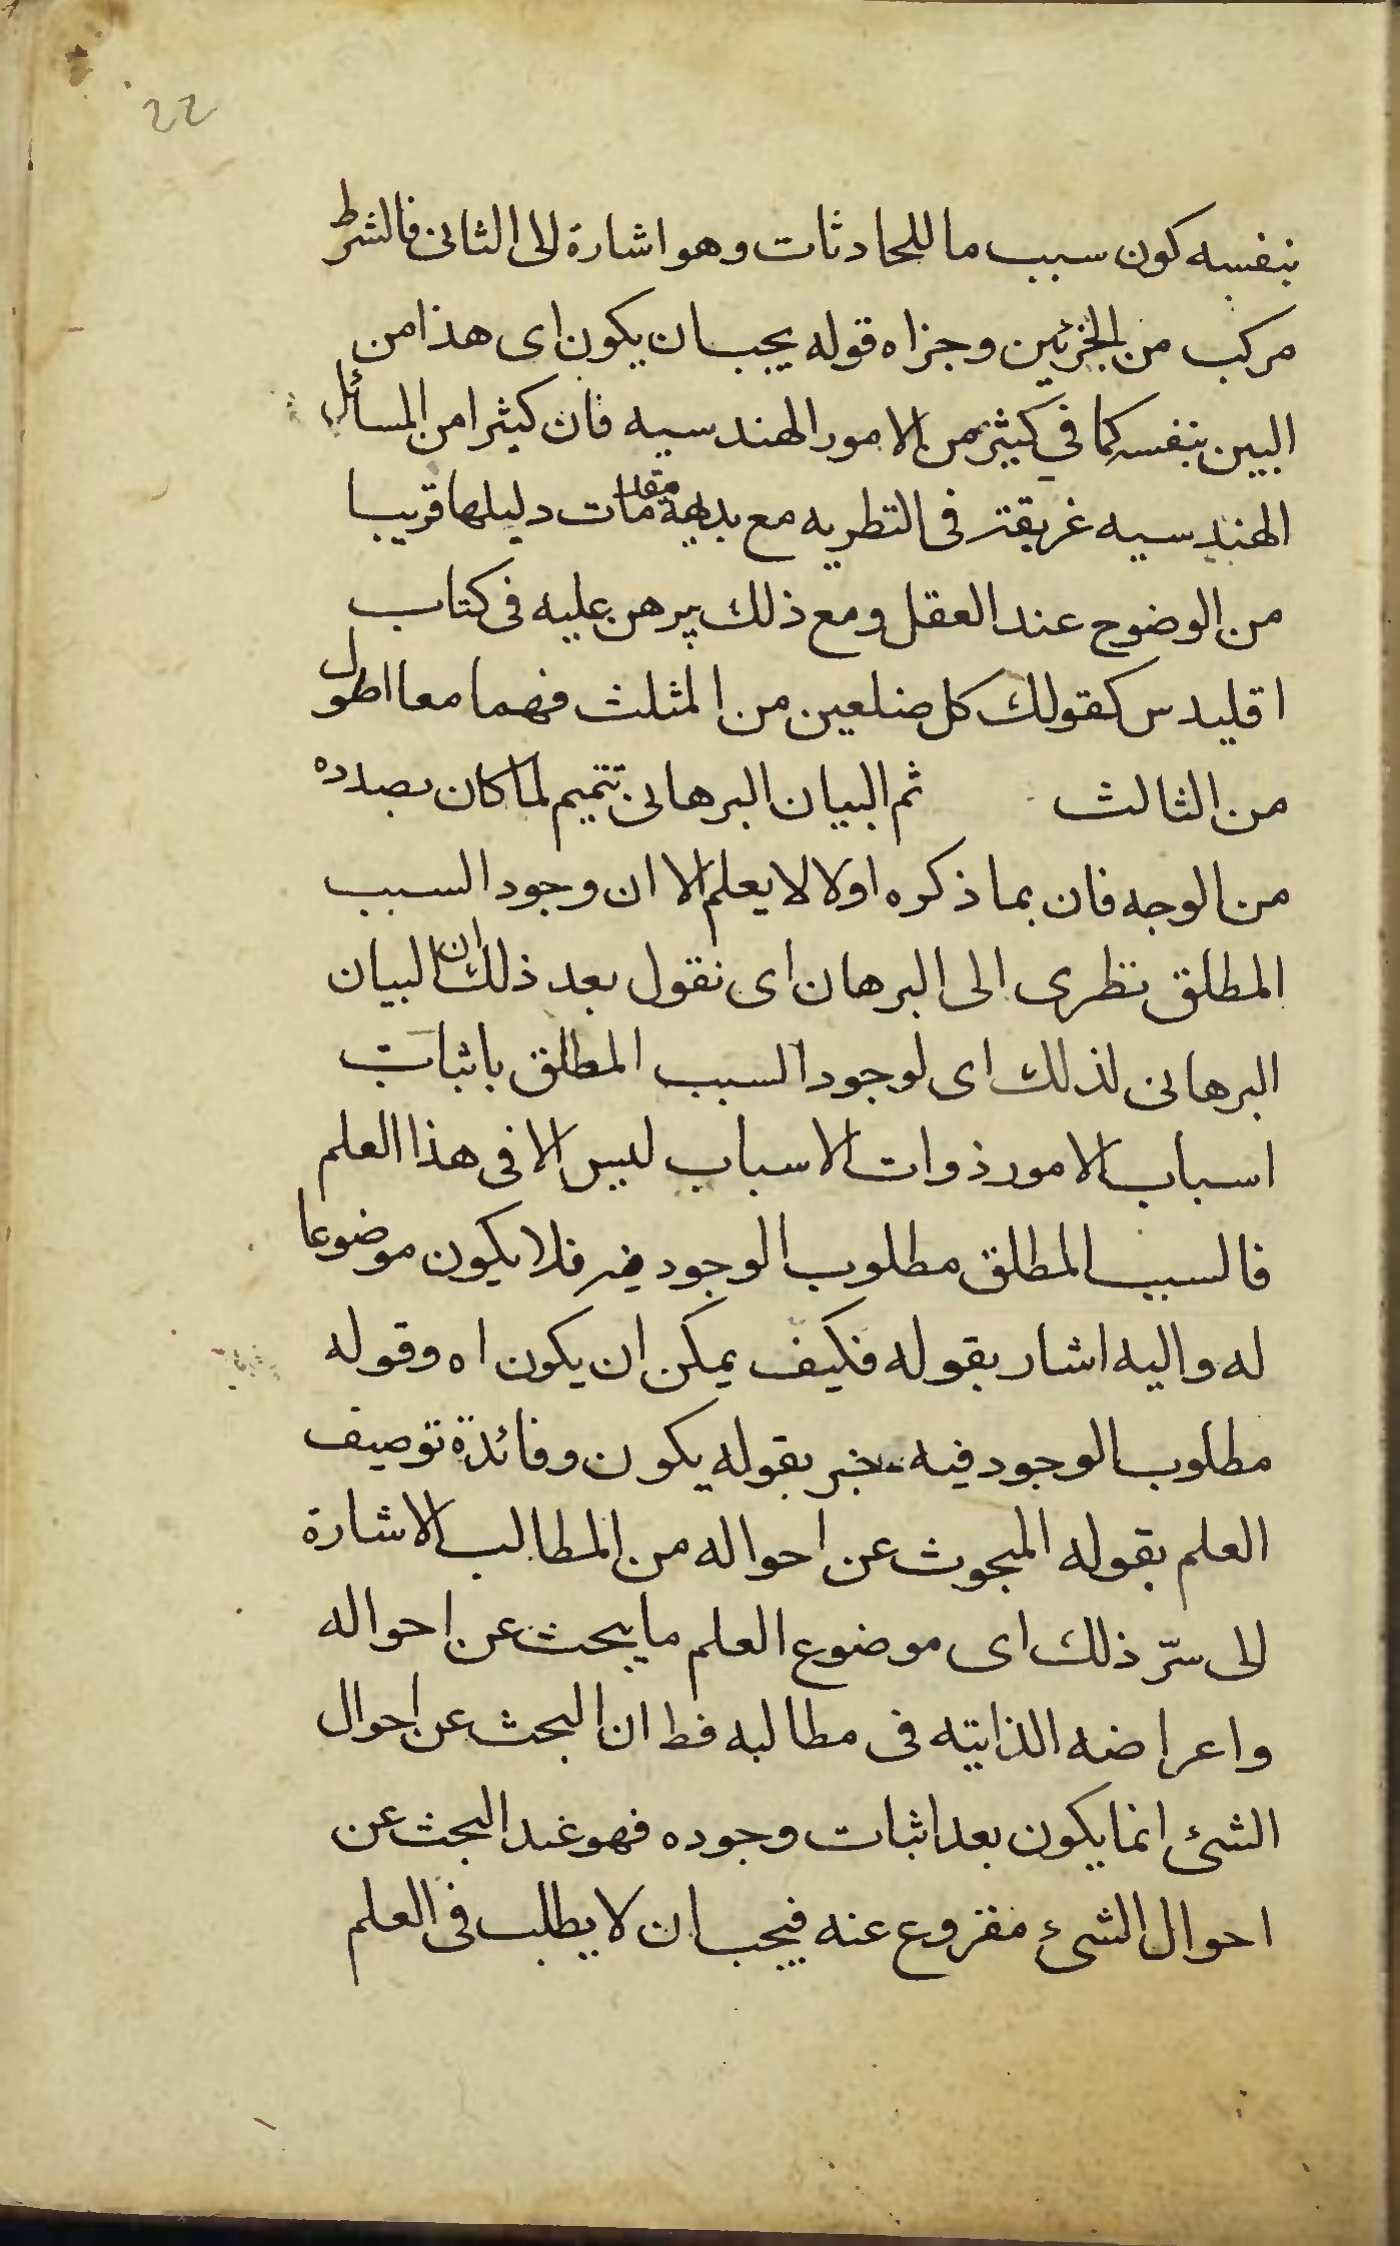 22
بنفسه كون سبب ما للحادثات وهو اشارة الى الثانى فالشرط
مركب من الجزئين وجزاه قوله يجب ان يكون اى هذا من
البين بنفسه كما في كثير من الامور الهندسيه فان كثيرا من المسائل
الهندسيه غريقة فى النظريه مع بداهة مقدمات دليلها قريبا
من الوضوح عند العقل ومع ذلك يبرهن عليه فى كتاب
اقليدس كقولك كل ضلعين من المثلث فهما معا اطول
من الثالث ثم البيان البرهانى تتميم لما كان بصدده
من الوجه فان بما ذكره اولا لا يعلم الا ان وجود السبب
المطلق نظرى الى البرهان اى نقول بعد ذلك ان البيان
البرهانى لذلك اى لوجود السبب المطلق باثبات
اسباب الامور ذوات الاسباب ليس الا فى هذا العلم
فالسبب المطلق مطلوب الوجود فيه فلا يكون موضوعا
له واليه اشار بقوله فكيف يمكن ان يكون اه وقوله
مطلوب الوجود فيه خبر بقوله يكون وفائدة توصيف
العلم بقوله المبحوث عن احواله من المطالب الاشارة
الى سرّ ذلك اى موضوع العلم ما يبحث عن احواله
واعراضه الذاتيه فى مطالبه فط ان البحث عن احوال
الشئ انما يكون بعد اثبات وجوده فهو عند البحث عن
احوال الشئ مفروع عنه فيجب ان لا يطلب فى العلم